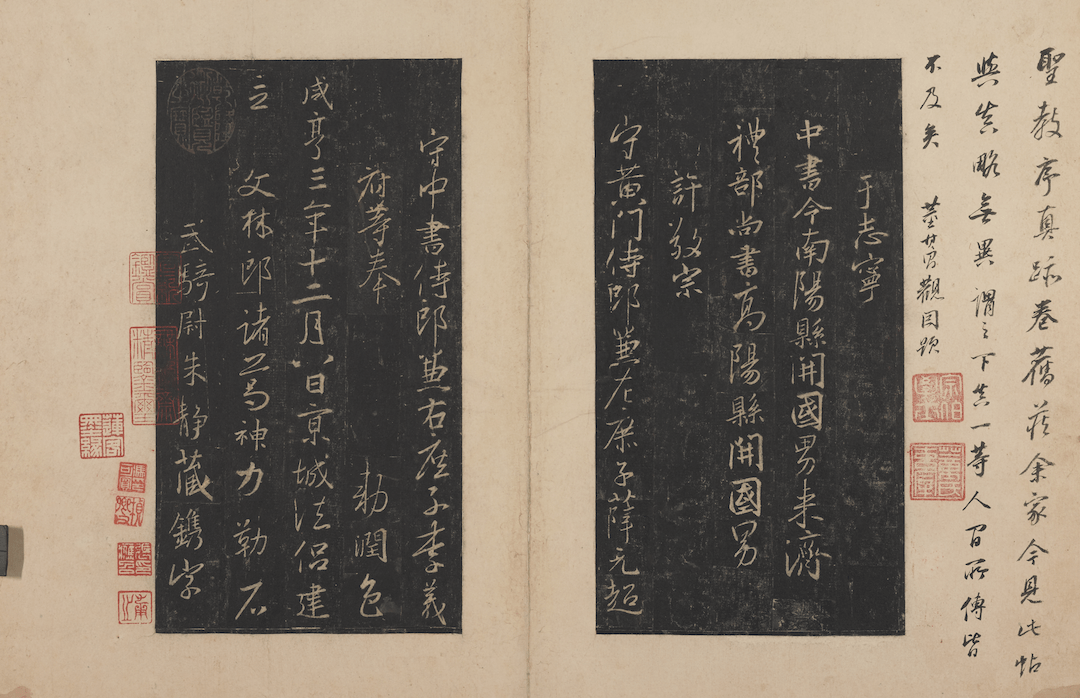 聖教序真跡卷舊藏余家今見此帖
與真略無異謂之下真一等人間所傳皆
不及矣 董其昌觀因題
宗伯學士
董氏玄宰
于志寧
中書令南陽縣開國男來濟
禮部尚書高陽縣開國男
許敬宗
守黃門侍郎兼左庶子薛元超
守中書侍郎兼右庶子李義
府等奉 敕潤色
咸亨三年十二月八日京城法侶建
立 文林郎諸葛神力勒石
武騎尉朱靜藏鐫字